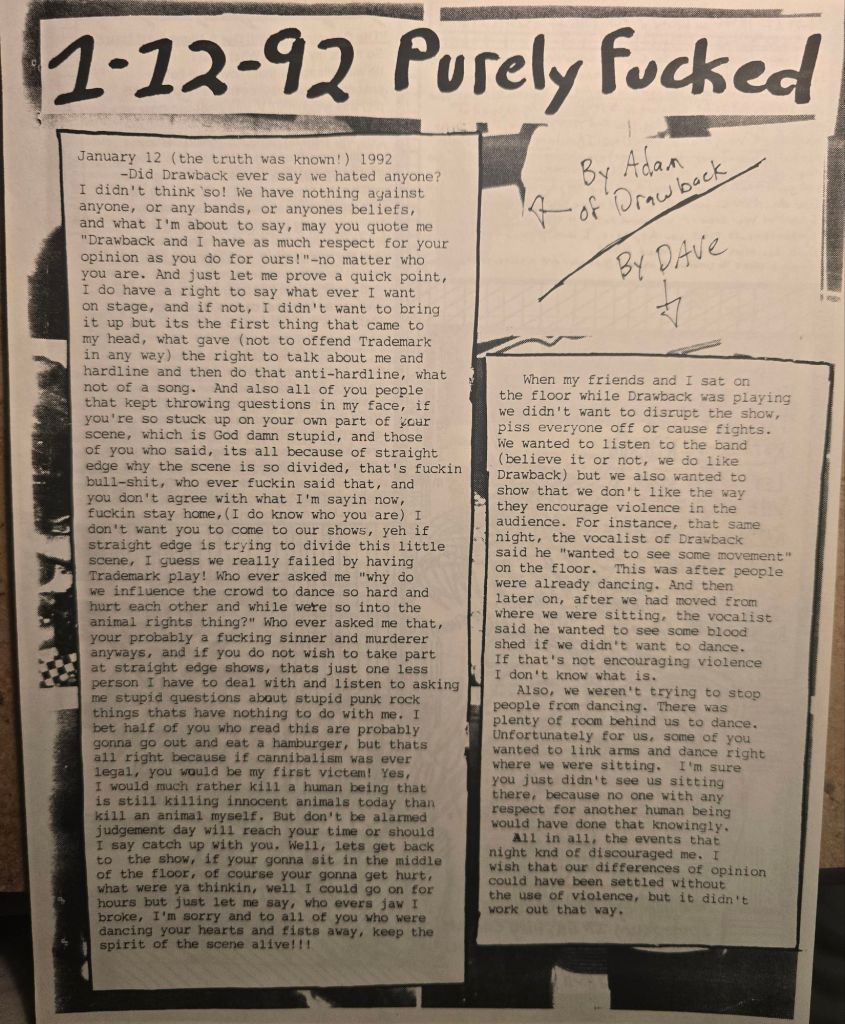 1-12-92 Purely Fucked
January 12 (the truth was known!) 1992
-Did Drawback ever say we hated anyone?
I didn't think so! We have nothing against
anyone, or any bands, or anyones beliefs,
and what I'm about to say, may you quote me
"Drawback and I have as much respect for your
opinion as you do for ours!"-no matter who
you are. And just let me prove a quick point,
I do have a right to say what ever I want
on stage, and if not, I didn't want to bring
it up but its the first thing that came to
my head, what gave (not to offend Trademark
in any way) the right to talk about me and
hardline and then do that anti-hardline, what
not of a song. And also all of you people
that kept throwing questions in my face, if
you're so stuck up on your own part of your
scene, which is God damn stupid, and those
of you who said, its all because of straight
edge why the scene is so divided, that's fuckin
bull-shit, who ever fuckin said that, and
you don't agree with what I'm sayin now,
fuckin stay home,(I do know who you are) I
don't want you to come to our shows, yeh if
straight edge is trying to divide this little
scene, I guess we really failed by having
Trademark play! Who ever asked me "why do
we influence the crowd to dance so hard and
hurt each other and while we're so into the
animal rights thing?" Who ever asked me that,
your probably a fucking sinner and murderer
anyways, and if you do not wish to take part
at straight edge shows, thats just one less
person I have to deal with and listen to asking
me stupid questions about stupid punk rock
things thats have nothing to do with me. I
bet half of you who read this are probably
gonna go out and eat a hamburger, but thats
all right because if cannibalism was ever
legal, you would be my first victem! Yes,
I would much rather kill a human being that
is still killing innocent animals today than
kill an animal myself. But don't be alarmed
judgement day will reach your time or should
I say catch up with you. Well, lets get back
to the show, if your gonna sit in the middle
of the floor, of course your gonna get hurt,
what were ya thinkin, well I could go on for
hours but just let me say, who evers jaw I
broke, I'm sorry and to all of you who were
dancing your hearts and fists away, keep the
spirit of the scene alive!!!
By Adam
of Drawback
By DAVE
When my friends and I sat on
the floor while Drawback was playing
we didn't want to disrupt the show,
piss everyone off or cause fights.
We wanted to listen to the band
(believe it or not, we do like
Drawback) but we also wanted to
show that we don't like the way
they encourage violence in the
audience. For instance, that same
night, the vocalist of Drawback
said he "wanted to see some movement"
on the floor. This was after people
were already dancing. And then
later on, after we had moved from
where we were sitting, the vocalist
said he wanted to see some blood
shed if we didn't want to dance.
If that's not encouraging violence
I don't know what is.
Also, we weren't trying to stop
people from dancing. There was
plenty of room behind us to dance.
Unfortunately for us, some of you
wanted to link arms and dance right
where we were sitting. I'm sure
you just didn't see us sitting
there, because no one with any
respect for another human being
would have done that knowingly.
All in all, the events that
night knd of discouraged me. I
wish that our differences of opinion
could have been settled without
the use of violence, but it didn't
work out that way.